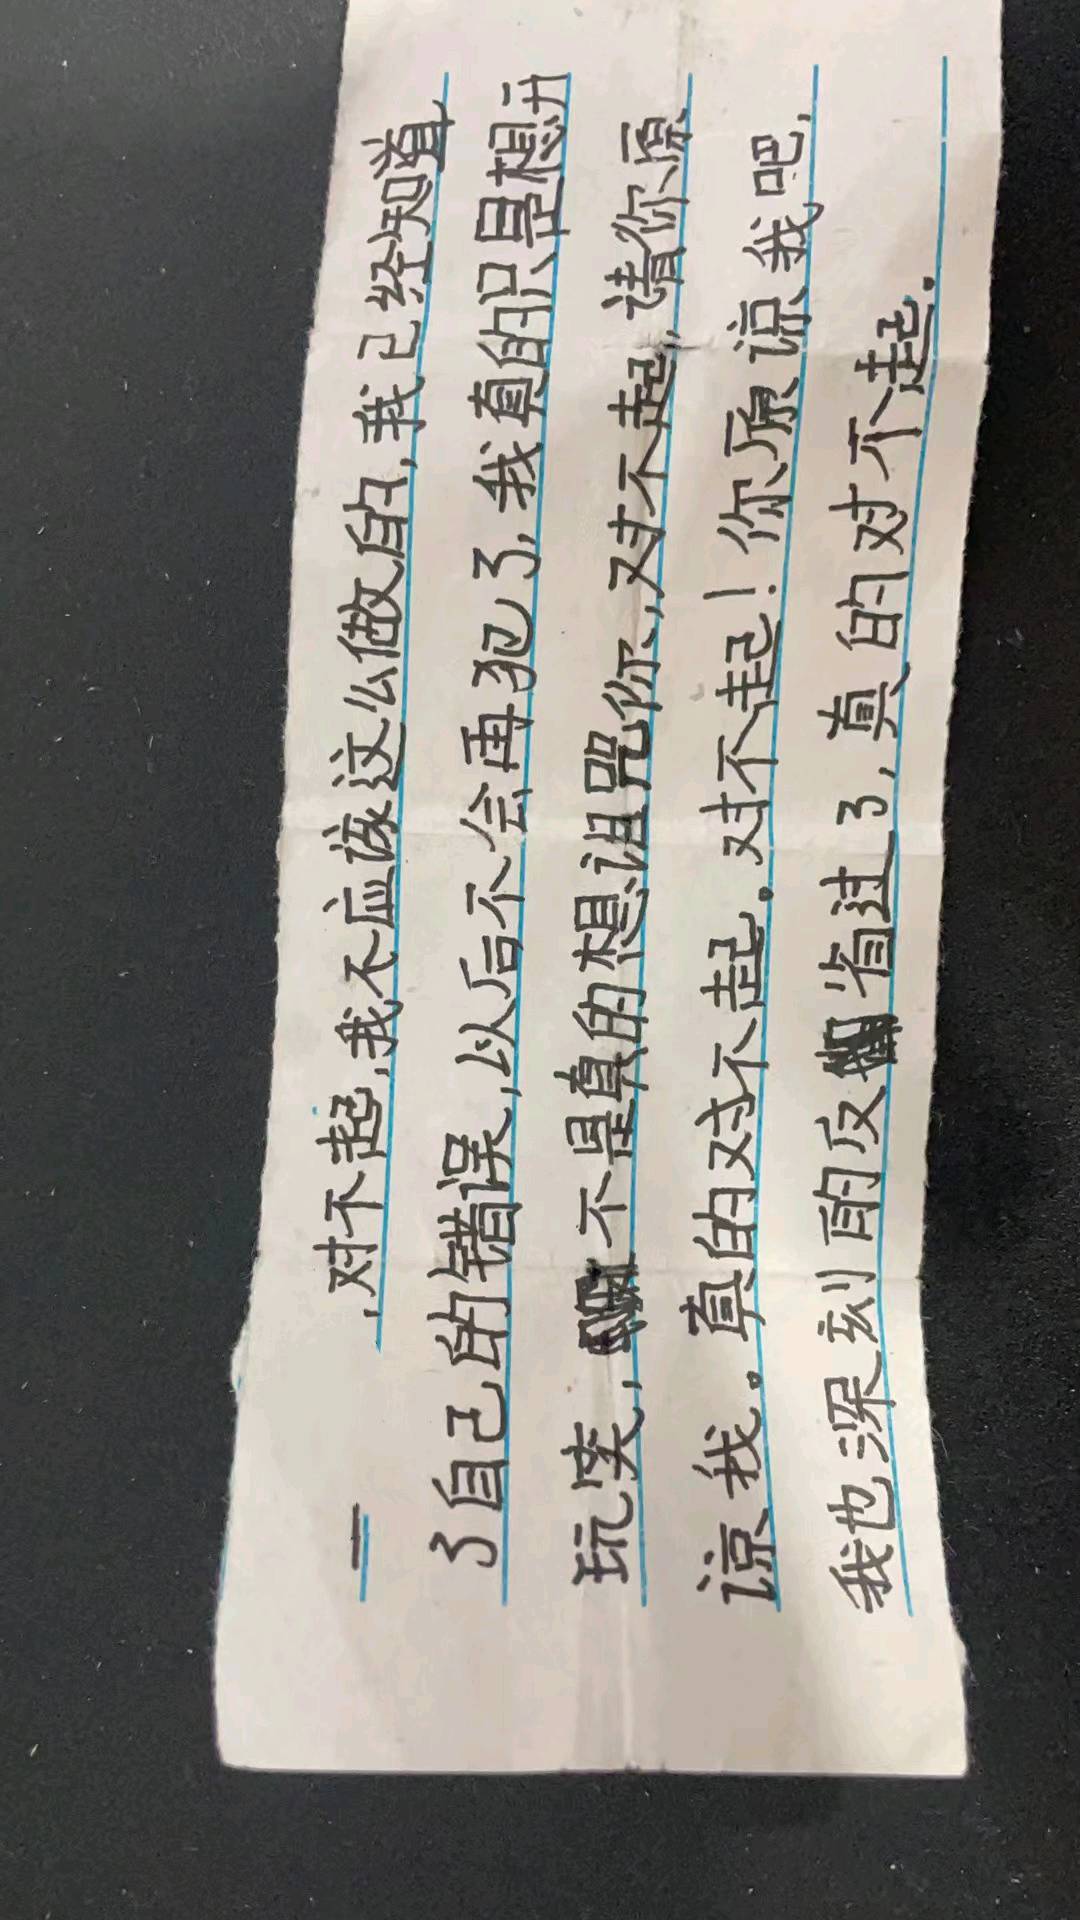 一 ,对不起,我不应该这么做的,我已经知道
了自己的错误,以后不会再犯了,我真的只是想开
玩笑,不是真的想诅咒你,对不起,请你原
谅我。真的对不起。对不起!你原谅我吧,
我也深刻的反省过了,真的对不起.